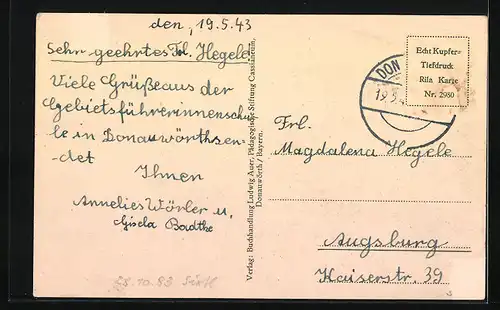 den, 19.5.43
Sehr geehrtes Frl. Hegele
Viele Grüße aus der
Gebietsführerinnenschu
le in Donauwörth sen-
det
Ihnen
Annelies Wörler u.
Gisela Badtke
Verlag: Buchhandlung Ludwig Auer, Pädagogische Stiftung Cassianeum,
Donauwörth / Bayern.
DON
19.5.4
Echt Kupfer-
Tiefdruck
Rifa Karte
Nr. 2980
Frl.
Magdalena Hegele
Augsburg
Kaiserstr. 39